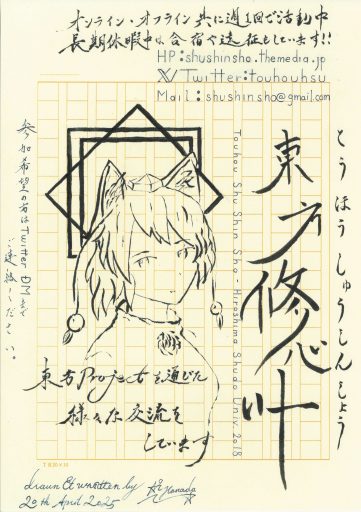 オンライン・オフライン共に週1回で活動中
長期休暇中は、合宿や遠征もしています!!
HP:shushinsho.themedia.jp
Twitter:touhouhsu
Mail:shushinsho@gmail.com
とうほうしゅうしんしょう
東方修心叶
Touhou Shu Shin Sho - Hiroshima Shudo Univ. 2018
参加希望の方はTwitter DMまで
ご連絡ください。
東方Projectを通じた
様々な交流を
しています
TB20×10
drawn & written by
Hanada
29th April 2025